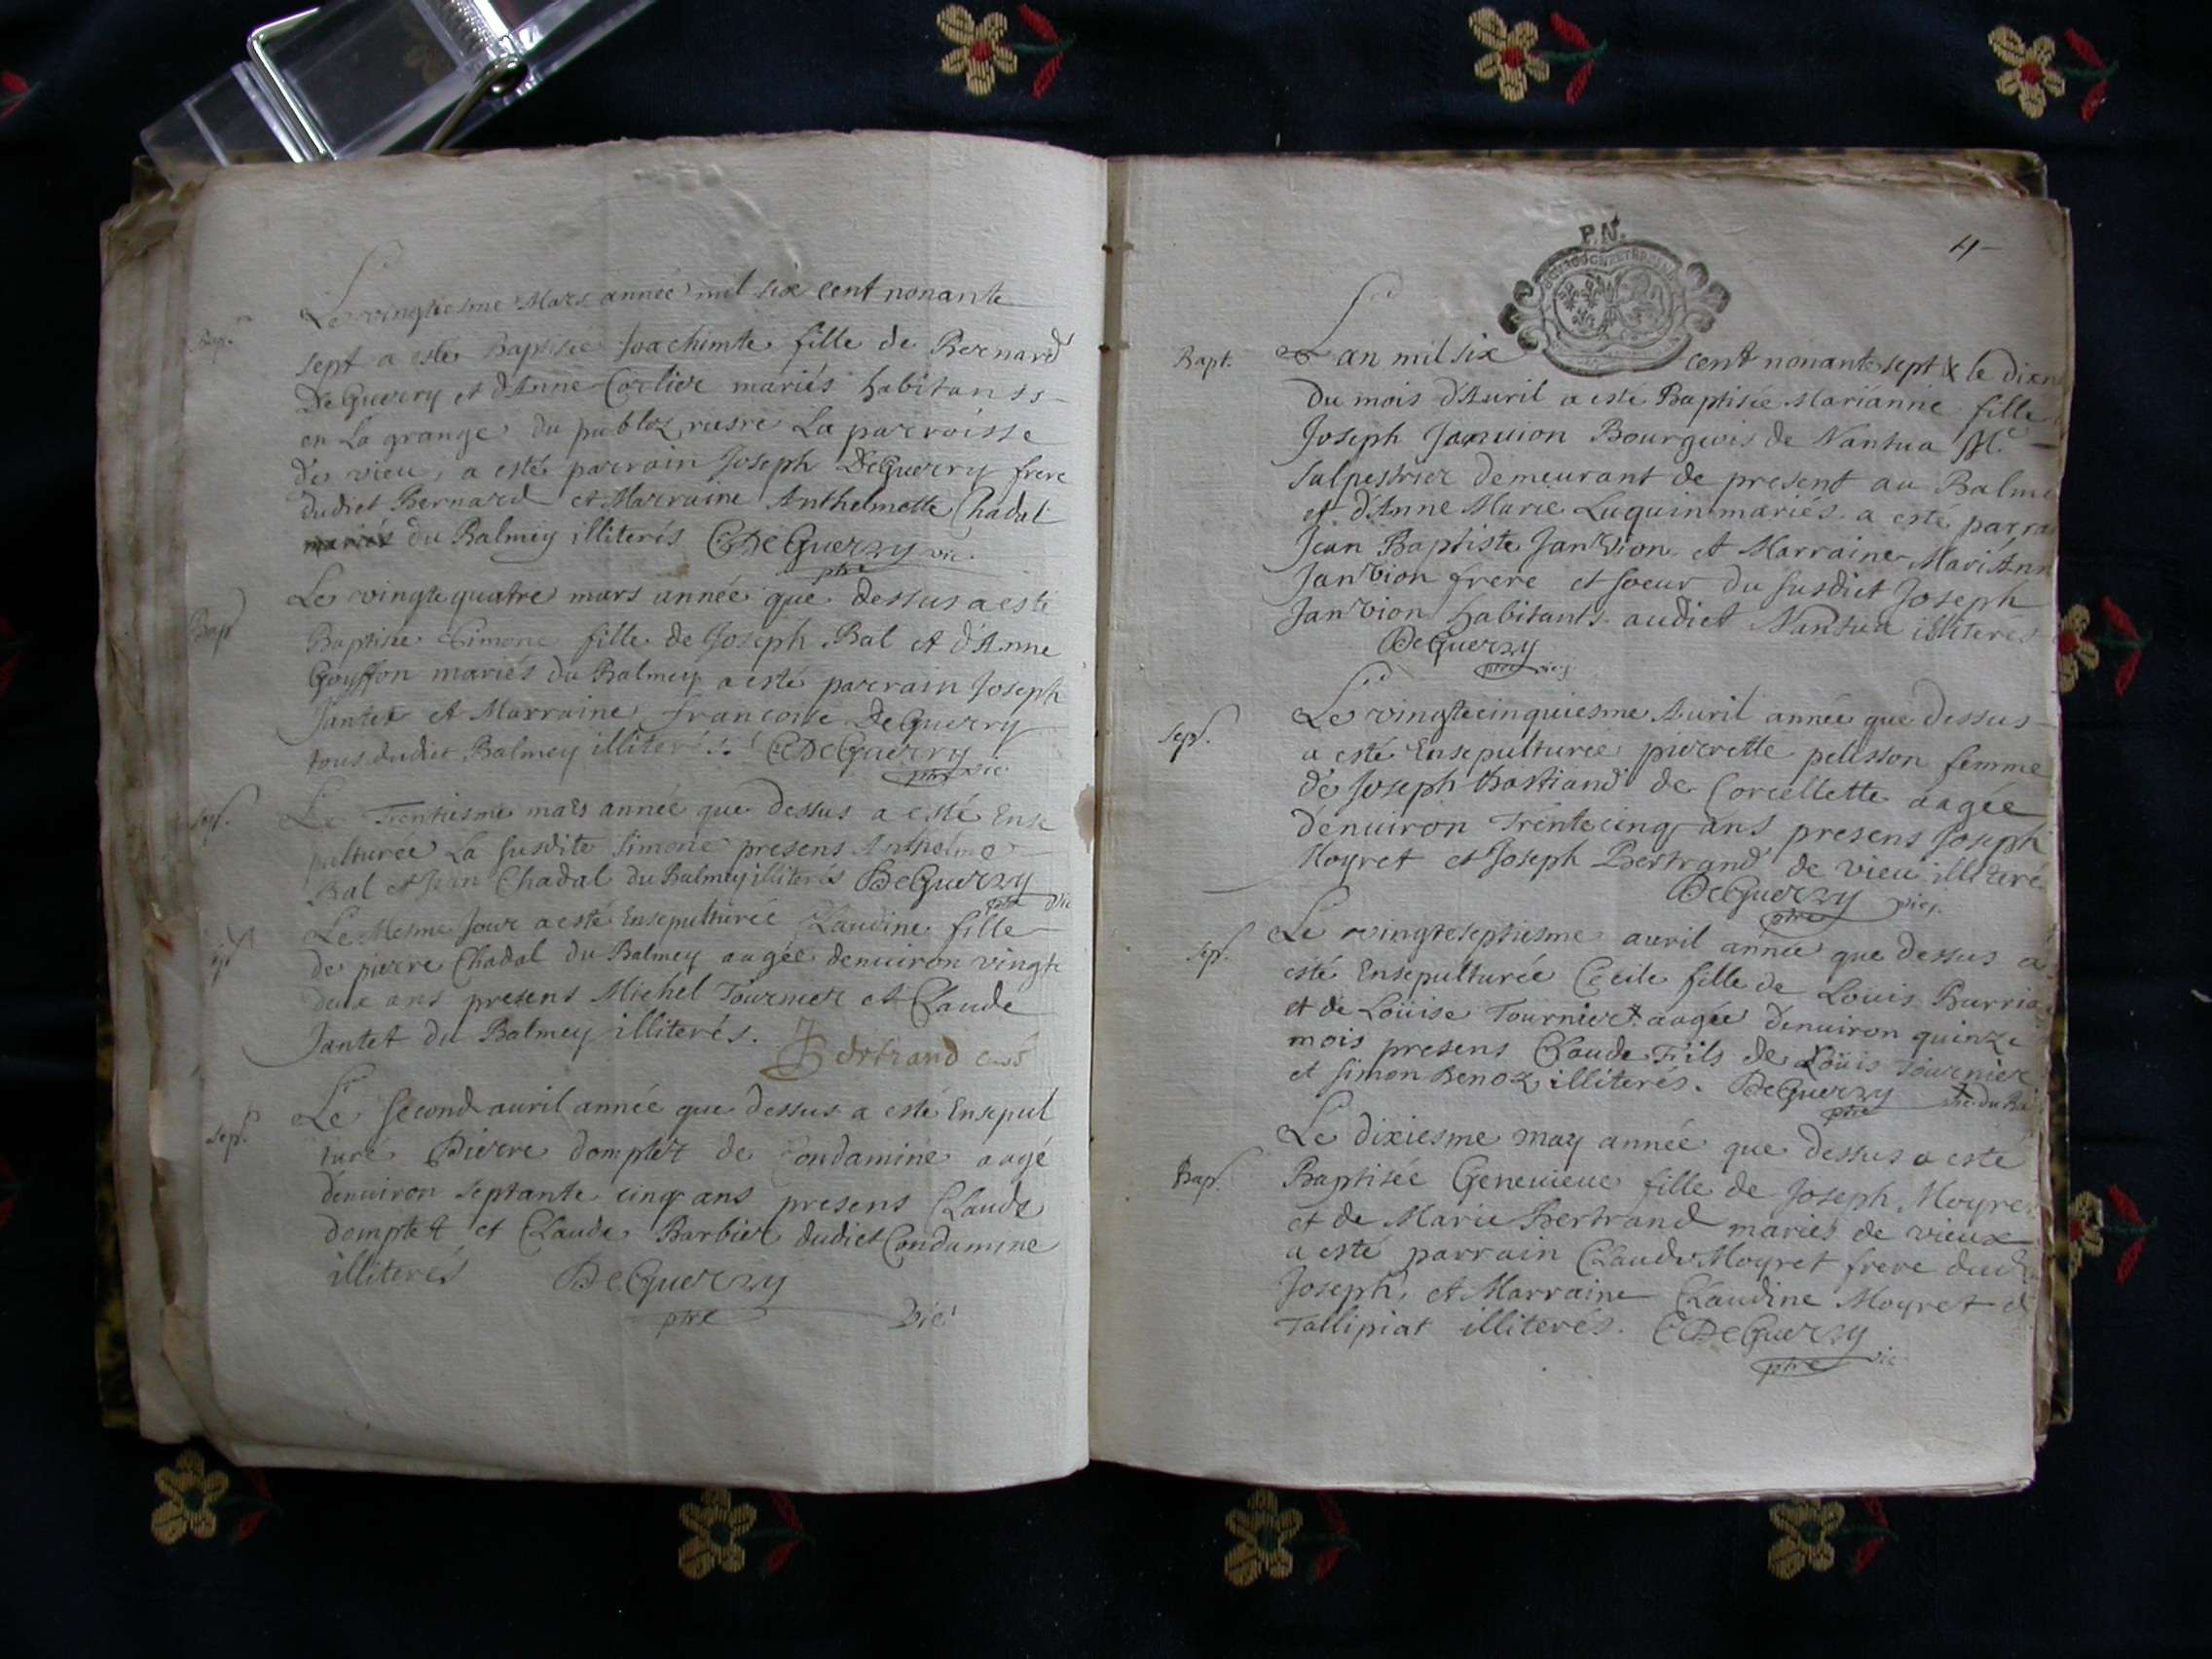 Le vingtiesme Mars année mil six cent nonante
Bap.
sept a esté Baptisée Joachimte fille de Bernard
DeGuerry et d'Anne Corlier mariés habitans
en La grange du publoz rusre La parroisse
de vieu, a esté parrain Joseph DeGuerry frere
dudict Bernard et Marraine Anthelmette Chadal
mariés du Balmey illiterés CDeGuerry vic.
ptre
Le vingte quatre mars année que dessus a esté
Bap
Baptisée Simone fille de Joseph Bal et d'Anne
Goyffon mariés du Balmey a esté parrain Joseph
Jantet et Marraine francoise DeGuerry
tous dudict Balmey illiterés. CDeGuerry
ptre vic
Le Trentiesme mars année que dessus a esté Ense
sep.
pulturée La susdite Simone presens Anthelme
Bal et Jean Chadal du Balmey illiterés DeGuerry
ptre vic
Le Mesme Jour a esté Ensepulturée Claudine fille
de pierre Chadal du Balmey aagée denuiron vingte
deux ans presens Michel Tournier et Claude
Jantet du Balmey illiterés.
JBertrand curé
Le second auril année que dessus a esté Ensepul
sep.
turé Pierre domptet de Condamine aagé
denuiron septante cinq ans presens Claude
domptet et Claude Barbier dudict Condamine
illiterés DeGuerry
ptre vic
P.N.
4
Bapt.
L'an mil six cent nonante sept & le dixn
du mois d'Auril a esté Baptisée Marianne fille
Joseph Januion Bourgeois de Nantua Me
salpestrier demeurant de present au Balme
et d'Anne Marie Luquin mariés a esté parra
Jean Baptiste Janvion et Marraine Mari Ann
Janvion frere et soeur du susdict Joseph
Janvion habitants audict Nantua illiterés
DeGuerry
ptre vic
Le vingtecinquiesme Auril année que dessus
sep.
a esté Ensepulturée pierrette pelisson femme
de Joseph Bastiand de Corcellette aagée
denuiron trente cinq ans presens Joseph
Moyret et Joseph Bertrand de vieu illiteré
DeGuerry
ptre vic.
Le vingteseptiesme auril année que dessus a
sep.
esté Ensepulturée Cecile fille de Louis Burria
et de Loüise Tournier aagée denuiron quinze
mois presens Claude Fils de Loüis Tournier
et Simon Benoz illiterés. DeGuerry
ptre vic. du Ba
Le dixiesme may année que dessus a esté
Bap.
Baptisée Geneuieue fille de Joseph Moyre
et de Marie Bertrand mariés de vieux
a esté parrain Claude Moyret frere dud
Joseph, et Marraine Claudine Moyret d
Tallipiat illiterés. CDeGuerry
ptre vic